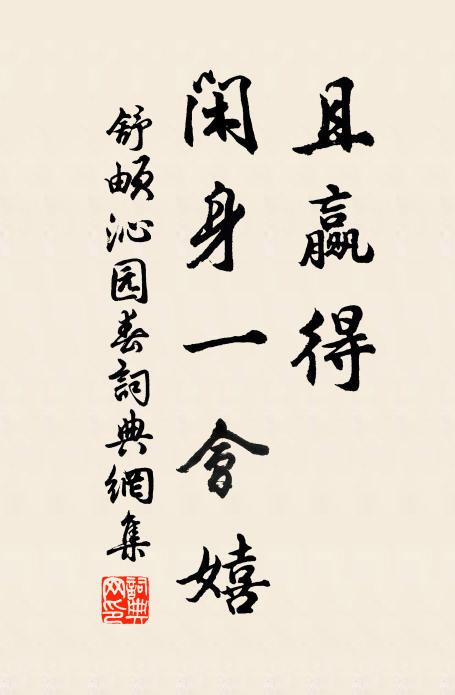 且赢得
闲身一會嬉
舒頔沁园春詞典網集
詞典网印